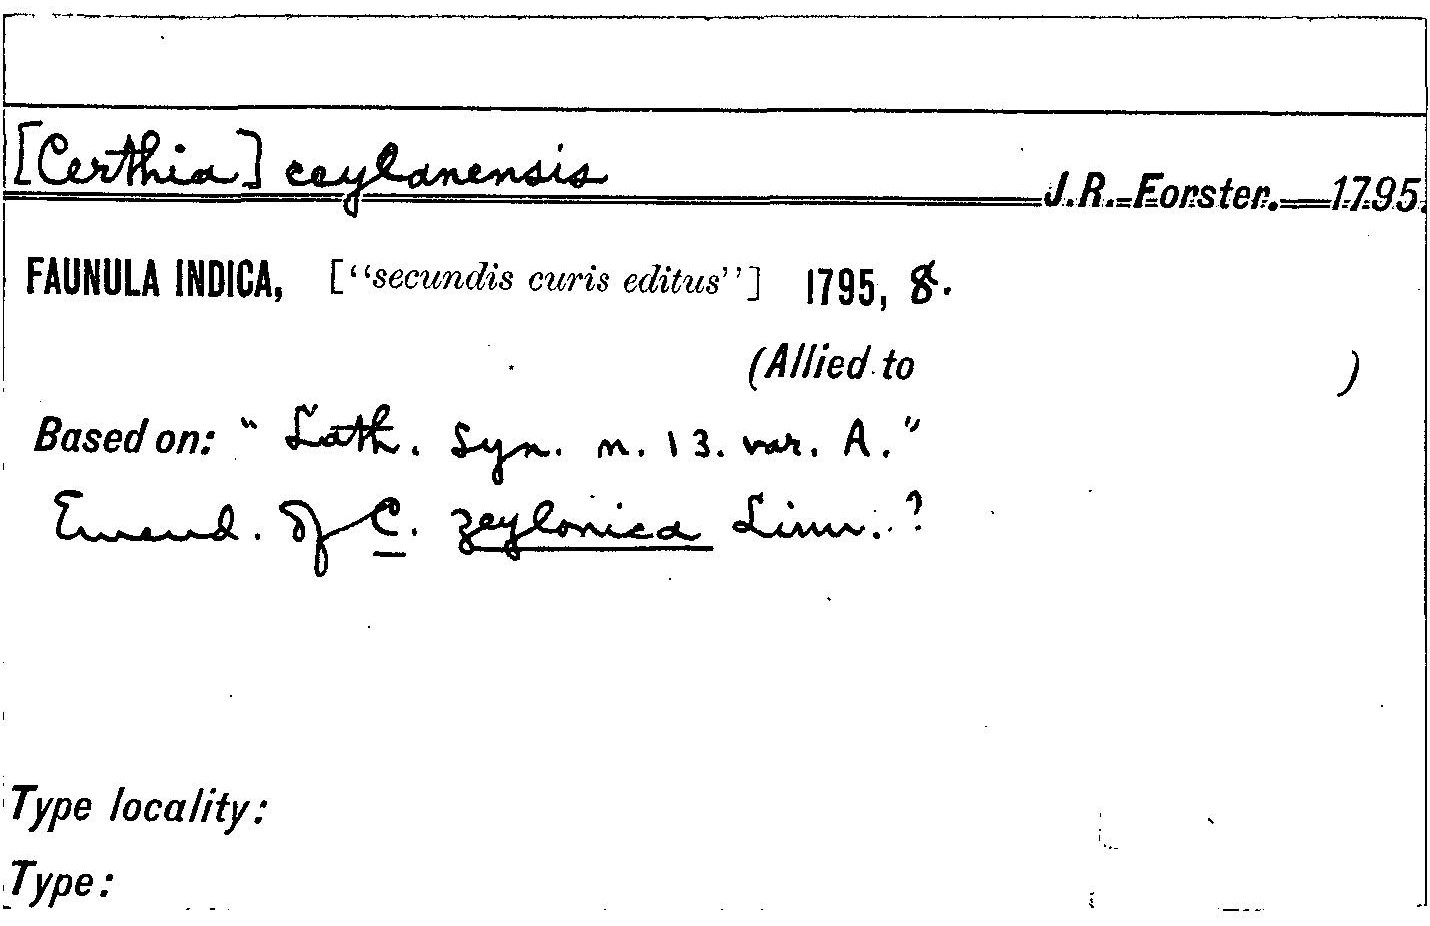 [Certhia] ceylanensis J.R. Forster. 1795.
FAUNULA INDICA, ["secundis curis editus"] 1795, 8.
(Allied to )
Based on: "Lath. Syn. n. 13. var. A."
Emend. of C. zeylonica Linn. ?
Type locality:
Type: